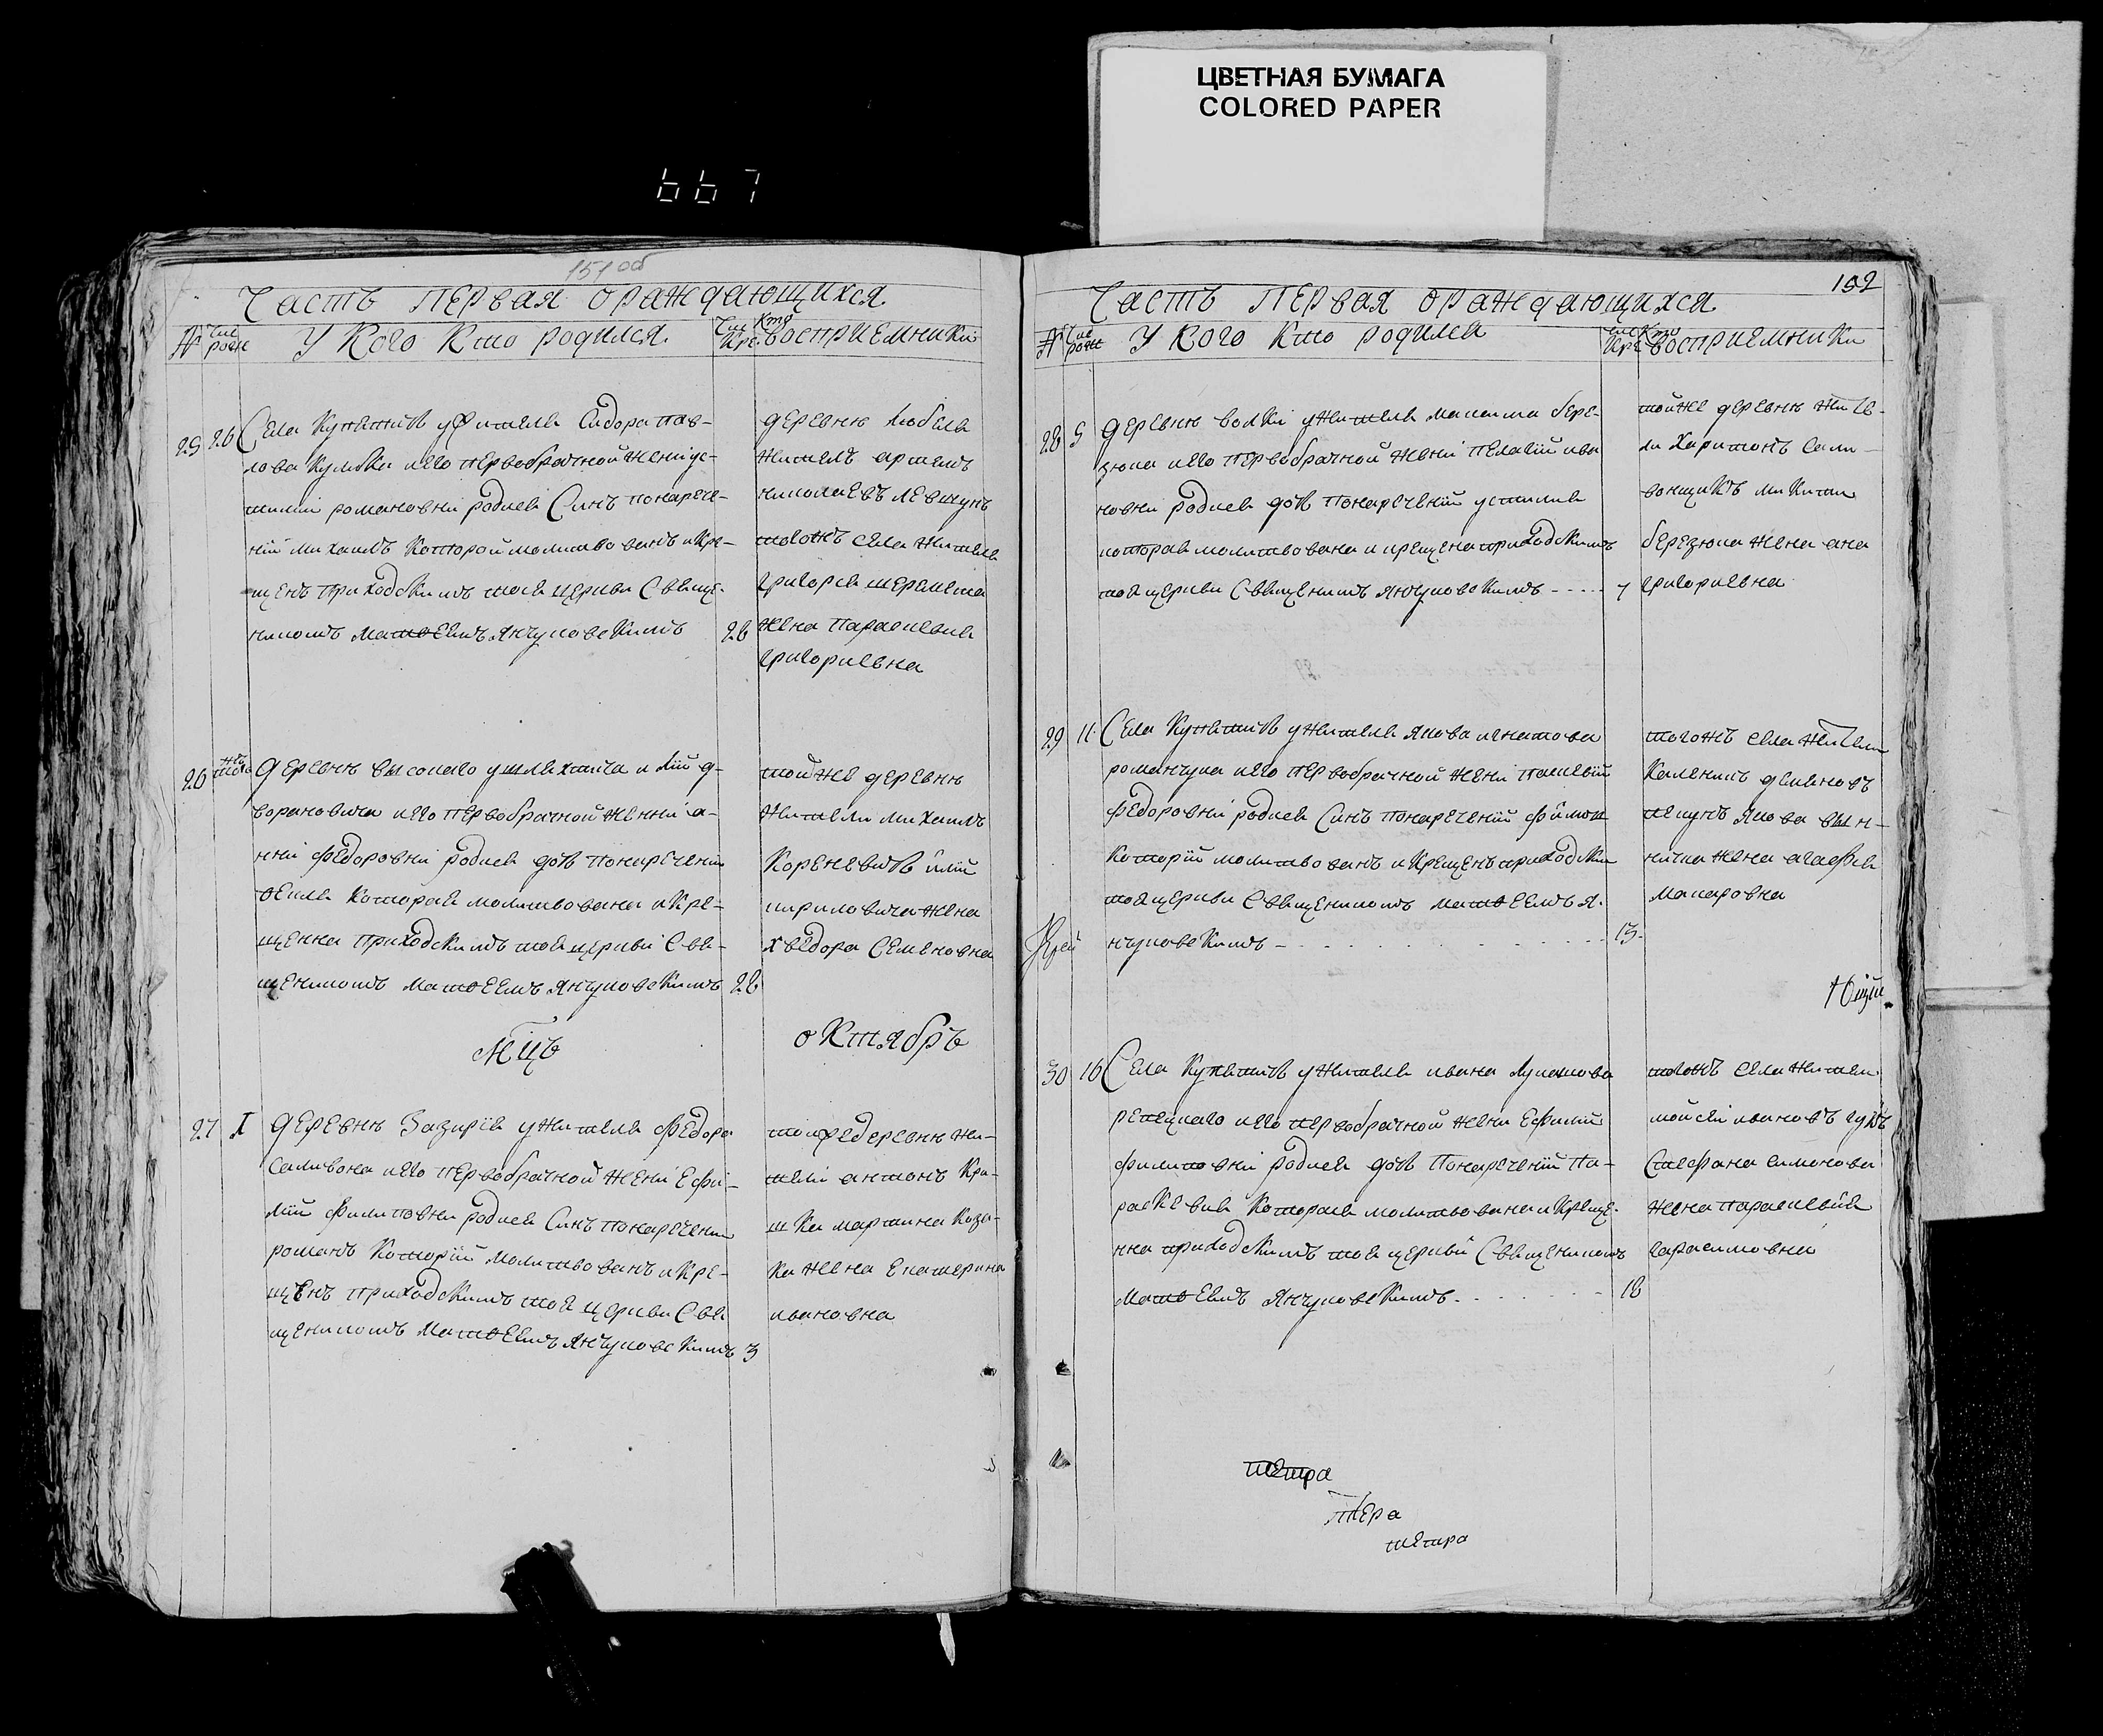 ЦВЕТНАЯ БУМАГА
COLORED PAPER
667
151 об
Часть первая ораждающихся
№ Чис рож У кого кто родился. Чис Кре. Кто восприемники
25 26 Села Купятичъ у жителя Сидора Пав-
лова Кулжка и его первобрачной жени ус-
тинïи романовни родися Синъ понарече-
нïй михаилъ Которой молитвованъ и Кре-
щенъ приходскимъ тоей церкви Свяще-
никомъ матвеемъ Янчуковскимъ 26
деревнѣ любеля
житель артемъ
николаевъ левшунъ
тогожъ села жителя
григорея шеремета
жена Параскевия
григориевна
26 деревнѣ высокаго у шляхтича илïй д-
ворановича и его первобрачной женнï а-
ннï федоровнï родися доч понареченïя
Которая молитвована и Кре-
щенна приходскимъ тоей церквï Свя-
щеникомъ матвеемъ Янчуковскимъ 26
той же деревнѣ
жители михаилъ
Кореневичъ илïй
кириловича жена
хведора Семеновна
Мцъ октябрь
27 1 деревнѣ Загурïя у жителя федора
Саливона и его первобрачной женï Ефи-
мïй филиповни родися Синъ понаречени
романъ Которïй молитвованъ и Кре-
щенъ приходскимъ тоей церкви Свя
щеникомъ матвеемъ Янчуковскимъ 3
тоижедеревнѣ жи-
телï антонъ Кра-
шка мартина Коза-
ка жена Екатерина
ивановна
152
Часть Первая ораждающихся
№ Чис рож У кого кто родися Чис Кре Кто восприемники
28 5 деревнѣ волки у жителя максима бере-
зюка и его первобрачной женï пелагïй ива
новни родися доч понареченïй устиния
которая молитвована и крещена приходскимъ
тоей церкви Священикомъ Янчуковскимъ - - - - 7
той же деревнѣ жите-
ли харитонъ Сали-
вонщикъ микити
березюка жена ана
григориевна
29 11 Села Купятичъ у жителя Якова игнатова
романчука и его первобрачной женï
федоровнï родися Синъ понареченïй
Которïй молитвованъ и крещенъ приходски
тоей церкви Священикомъ матвеемъ Я-
нчуковскимъ - - - - - 13
тогожъ села жители
Каленикъ деменовъ
Якова
жена агафия
макаровна
30 16 Села Купятичъ у жителя ивана лукашова
репецкаго и его первобрачной жени Ефимïй
филиповнï родися доч понареченïй Па-
раскевия Которая молитвована и Креще-
нна приходскимъ тоей церквï Священикомъ
матвеемъ Янчуковскимъ - - - - - 18
тогожъ села жители
мойсей ивановъ
Стефана симонова
жена параскевïя
гарасимовна